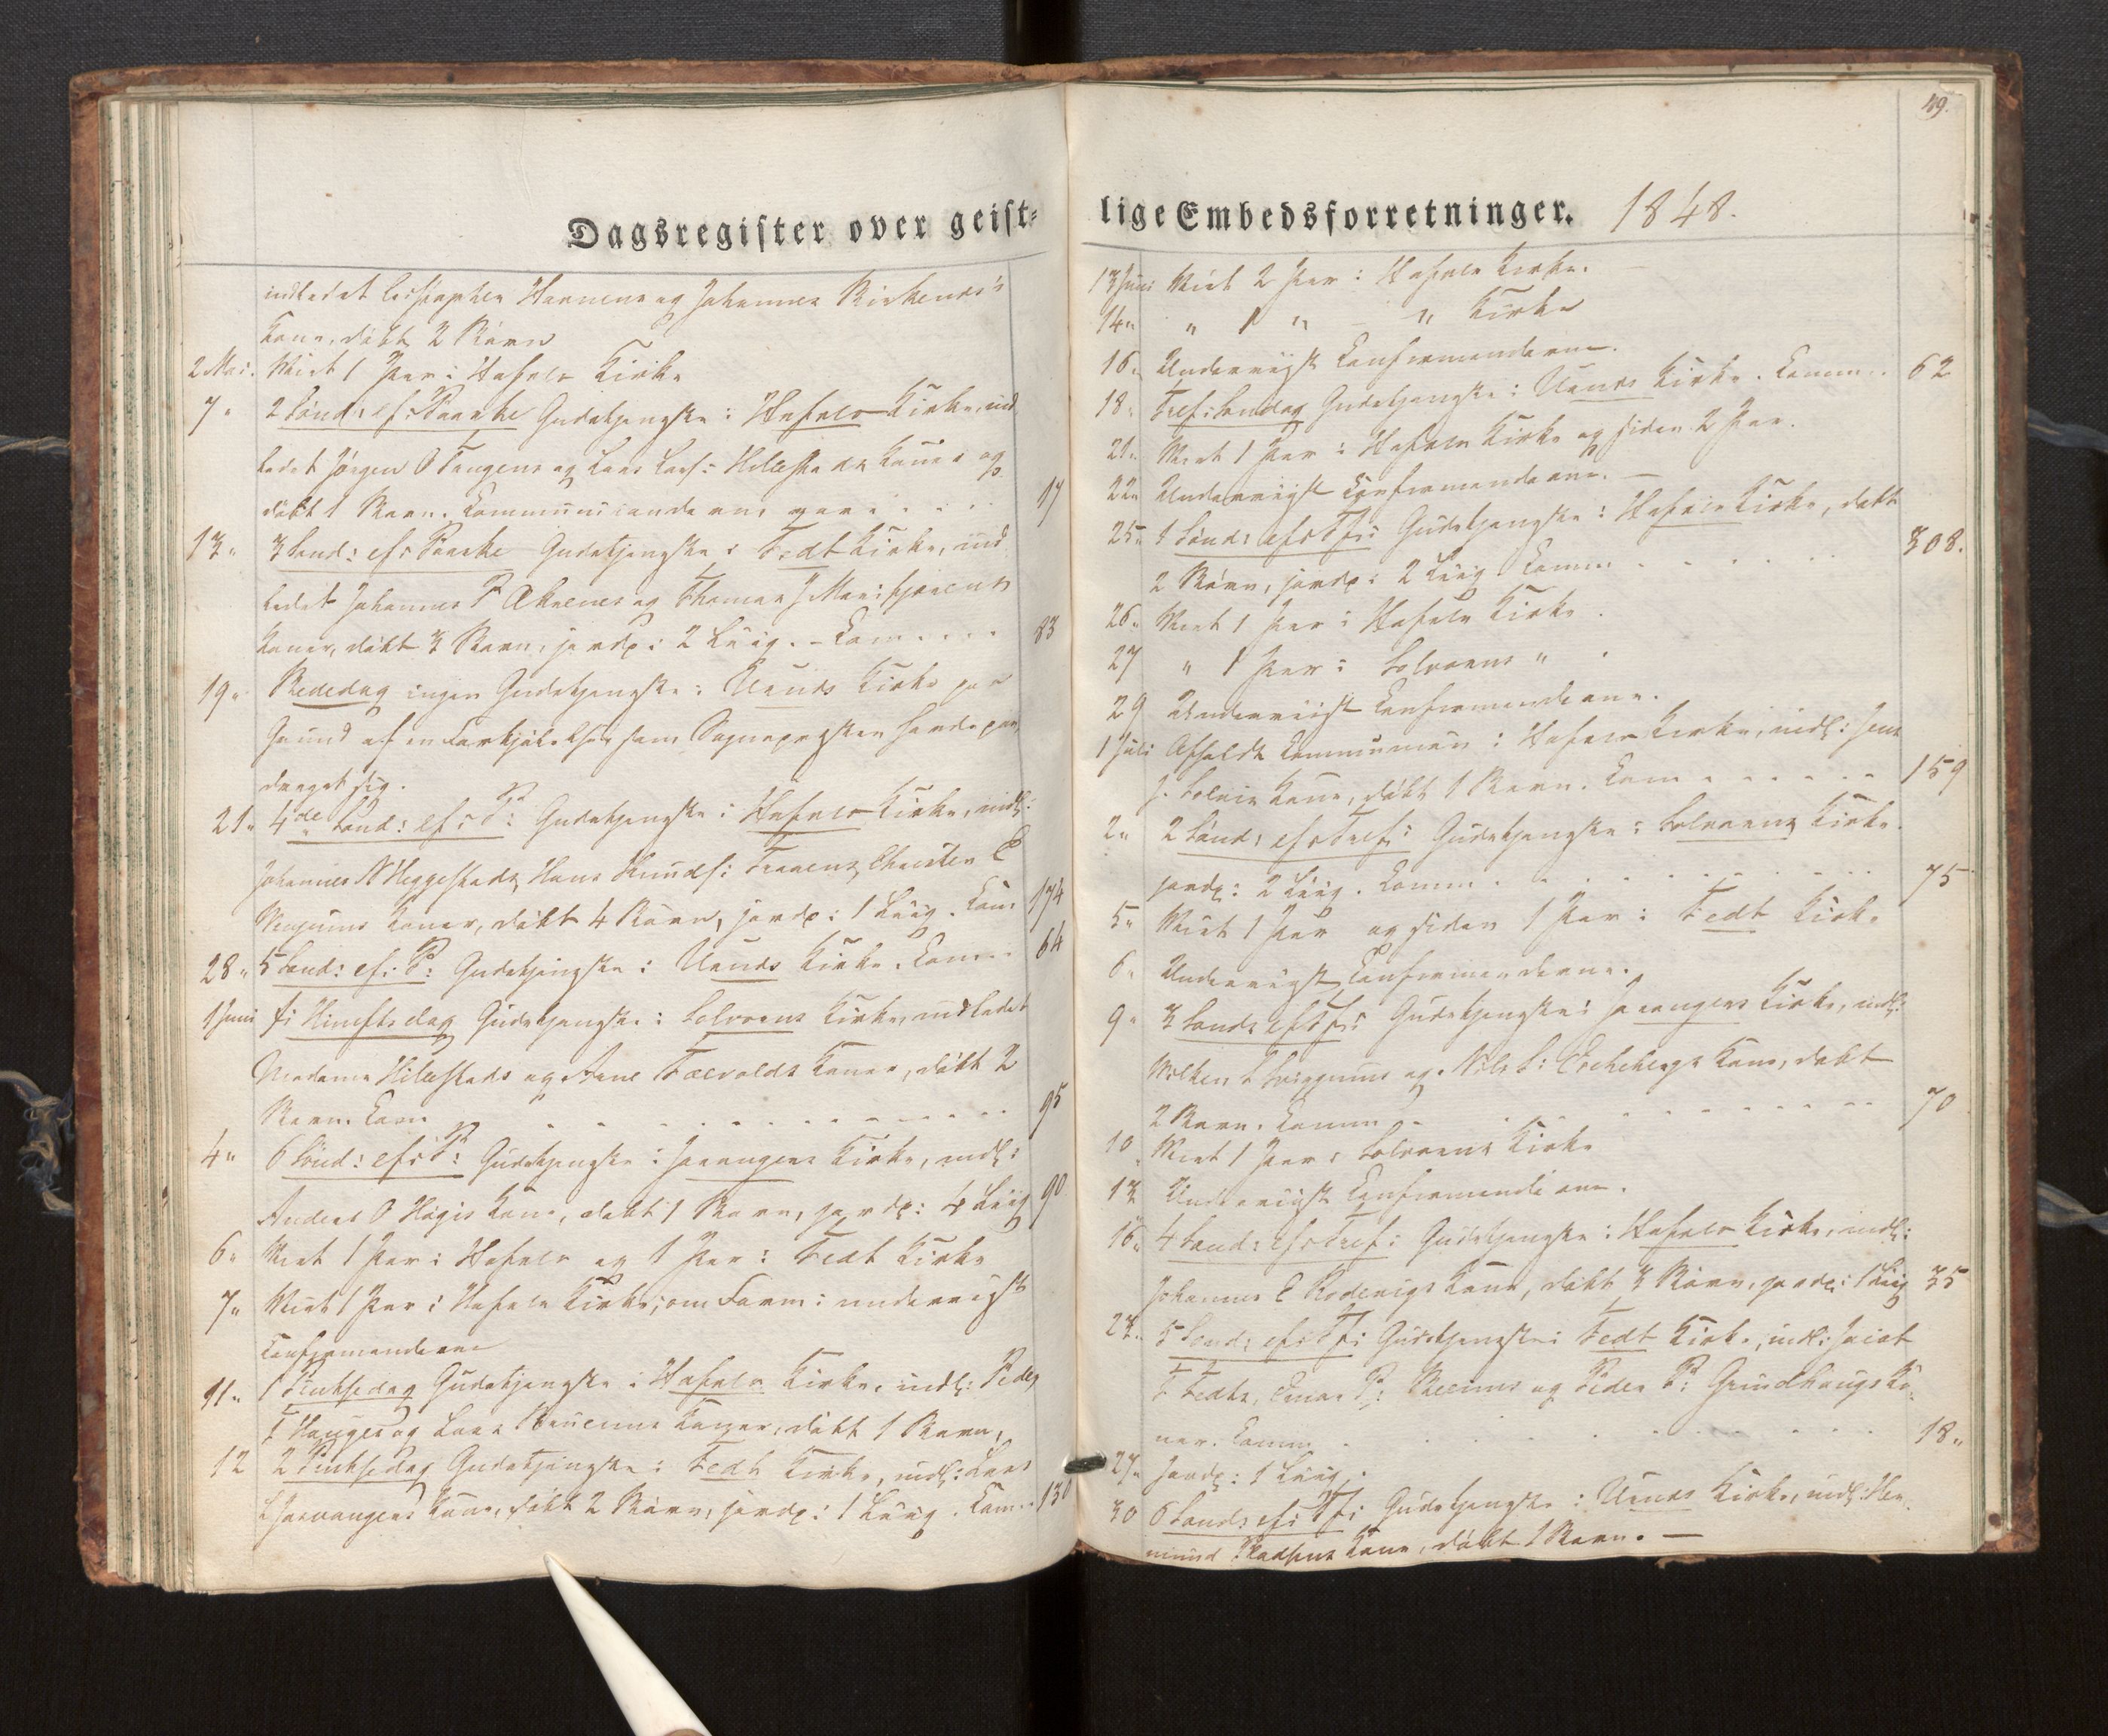 Dagsregister over geist-
indledet Christopher Hævnens og Johannes Kirkends's
Kone, døbt 2 Børn
2 Mai. Viet 1 Par i Hafslo Kirke
7 " 2 Sønd: ef: Paaske Gudstjeneste i Hafslo Kirke, ind
ledet Jørgen O Tangens og Lars Larss: Hillestads Koner og
døbt 1 Barn. Communicanderne vare . . . . 17
13 " 3 Sønd: ef: Paaske Gudstjeneste i Fedt Kirke, ind
ledet Johannes P Ahrenes og Thomas J
Koner, døbt 3 Børn, jordp: 2 Liig. - Com . . . . 83
19 " Bededag ingen Gudstjeneste i Urnes Kirke paa
Grund af en Forkjølelse som Sognepræsten havde paa
draget sig.
21 " 4de Sønd: ef: P: Gudstjeneste i Hafslo Kirke, indl:
Johannes N Heggestads, Hans Knuds: Christen E
Koner, døbt 4 Børn, jordp: 1 Liig. Com 174
28 " 5 Sønd: ef: P: Gudstjeneste i Urnes Kirke. Com . . 64
1 Juni Ki Himelfts dag Gudstjeneste i Solvorns Kirke, indledet
Madame Hillestads og Arne Koner, døbt 2
Børn. Com " . . . . . . . . . 95
4 " 6 Sønd: ef: P: Gudstjeneste i Joranger Kirke, indl:
Anders O Høgis Kone, døbt 1 Barn, jordp: 4 Liig 90
6 " Viet 1 Par i Hafslo og 1 Par i Fedt Kirke
7 " Viet 1 Par i Hafslo Kirke; om Form: underviist
Confirmanderne
11 " 1 Pintsedag Gudstjeneste i Hafslo Kirke, indl: Peder
T Hauges og Lars Koner, døbt 1 Barn,
12 2 Pintsedag Gudstjeneste i Fedt Kirke, indl: Lars
L Joranger Kone, døbt 2 Børn, jordp: 1 Liig. Com . . 130
49.
lige Embedsforretninger. 1848.
13 Juni Viet 2 Par i Hafslo Kirke.
14 " " 1 " - " Kirke
16 " Underviist Confirmanderne.
18 " Tref: Søndag Gudstjeneste i Urnes Kirke. Comm . . 62
21 " Viet 1 Par i Hafslo Kirke og siden 2 Par.
22 " Underviist Confirmanderne. -
25 " 1 Sønd: ef: Tf: Gudstjeneste i Hafslo Kirke, døbt
2 Børn, jordp: 2 Liig. Comm . . . . . . 308.
26 " Viet 1 Par i Hafslo Kirke.
27 " 1 Par i Solvorns "
29 Underviist Confirmanderne.
1 Juli Afholdt Communion i Hafslo Kirke, indl: Jens
J. Kone, døbt 1 Barn. Com . . . . . . 159
2 " 2 Sønd: ef: Tref: Gudstjeneste i Solvorns Kirke.
jordp: 2 Liig. Comm . . . . . . . . . 75
5 " Viet 1 Par og siden 1 Par i Fedt Kirke
6 " Underviist Confirmanderne.
9 " 3 Sønd: ef: Tf: Gudstjeneste i Joranger Kirke, indl:
og Nils S: Kone, døbt
2 Børn. Comm . . . . . . . . . 70
10 " Viet 1 Par i Solvorns Kirke
13 Underviist Confirmanderne.
16 " 4 Sønd: ef: Tref: Gudstjeneste i Hafslo Kirke, indl:
Johannes E Kone, døbt 3 Børn, jordp: 1 Liig 35
23 " 5 Sønd: ef: Tf: Gudstjeneste i Fedt Kirke, indl:
T Fedts, P: og Peder P: Grindhaugs Ko-
ner. Comm . . . . . . . . . 18 "
27 " Jordp: 1 Liig.
30 6 Sønd: ef: Tf: Gudstjeneste i Urnes Kirke, indl: Her
mund Kone, døbt 1 Barn. -